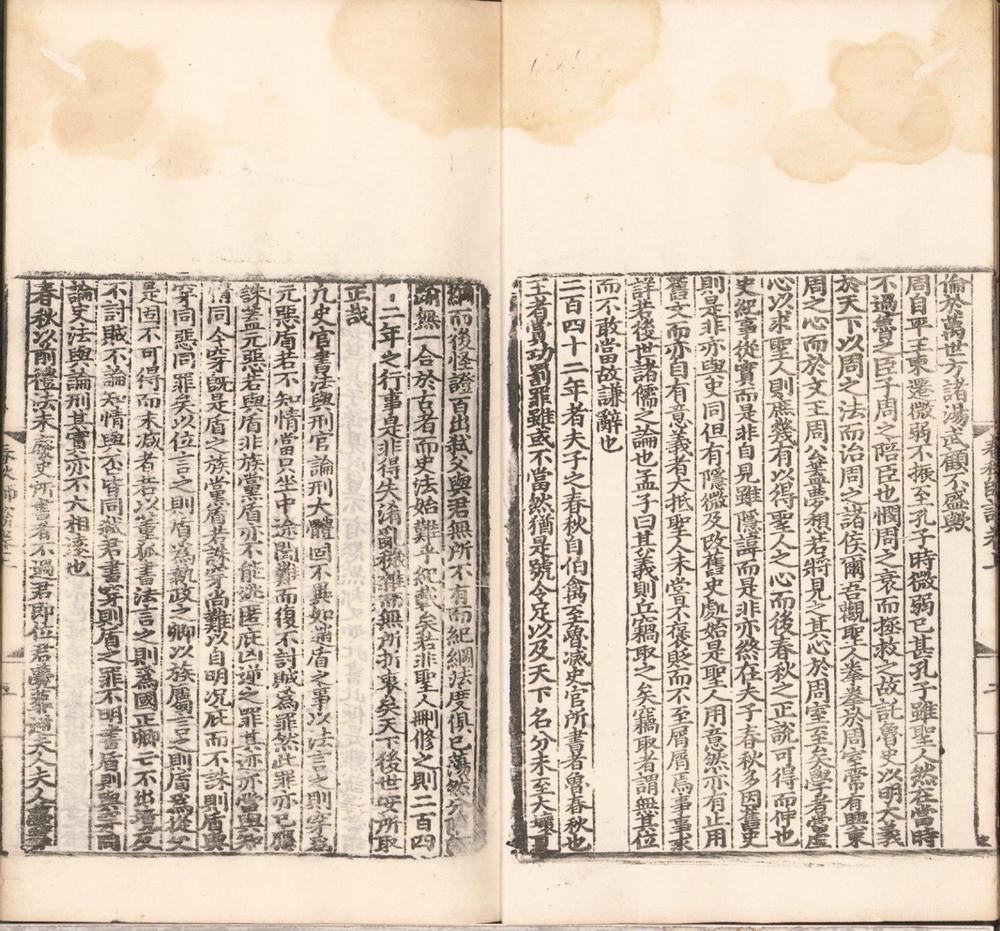 倫於萬世方諸湯武顧不盛歟
周自平王東遷微弱不振至孔子時微弱已甚孔子雖聖人然在當時
不過魯之臣子周之陪臣也憫周之衰而拯救之故託魯史以明大義
於天下以周之法而治周之諸侯爾吾觀聖人拳拳於周室常有興東
周之心而於文王周公葢夢想若將見之其心於周室至矣學者當虛
心以求聖人則庶幾有以得聖人之心而後春秋之正說可得而伸也
史紀事從實而是非自見雖隱諱而是非亦然在夫子春秋多因舊史
則是非亦與史同但有隱微及改舊史處始是聖人用意然亦有止用
舊文而亦自有意義者大抵聖人未嘗不褒貶而不至屑屑焉事事求
詳若後世諸儒之論也孟子曰其義則丘竊取之矣竊取者謂無其位
而不敢當故謙辭也
二百四十二年者夫子之春秋自伯禽至魯滅史官所書者魯春秋也
王者賞功罰罪雖或不當然猶是號令足以及天下名分未至大壞
而後怪證百出弒父與君無所不有而紀綱法度俱已蕩然矣
一合於古者而史法始難乎紀載矣若非聖人刪修之則二百四
十二年之行事是非得失淆亂穢雜而無所折衷矣天下後世安所取
正哉
凡史官書法與刑官論刑大體固不異如趙盾之事以法言之則穿爲
元惡盾若不知情當只坐中途聞難而復不討賊爲罪然此罪亦已應
誅蓋元惡若與盾非族黨盾亦不能逃匿庇凶逆之罪其迹亦當與知
情同今穿既是盾之族黨盾若誅穿尚難以自明况庇而不誅則盾與
穿同惡同罪矣以位言之則盾爲執政之卿以族屬言之則盾爲從父
是固不可得而末減者若以董狐書法言之則爲國正卿亡不出境反
不討賊不論知情與否皆同弒君書穿則盾之罪不明書盾則與穿同
論史法與論刑其實亦不大相遠也
春秋以前禮法未廢史所書者不過君即位君薨葬逆夫人夫人薨葬